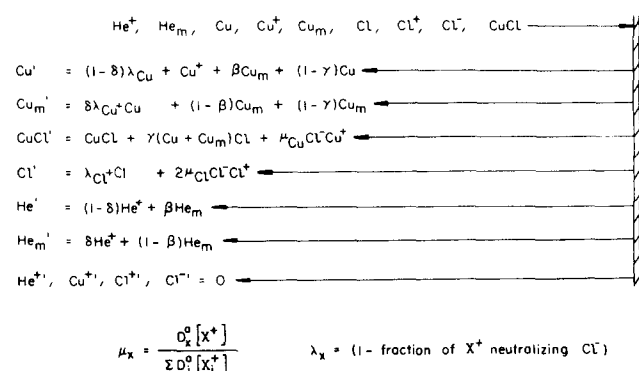 He⁺, Heₘ, Cu, Cu⁺, Cuₘ, Cl, Cl⁺, Cl⁻, CuCl
Cu' = (1-δ)λ_Cu + Cu⁺ + βCuₘ + (1-γ)Cu
Cuₘ' = δλ_Cu⁺Cu + (1-β)Cuₘ + (1-γ)Cuₘ
CuCl' = CuCl + γ(Cu + Cuₘ)Cl + μ_CuCl⁻Cu⁺
Cl' = λ_Cl⁺Cl + 2μ_ClCl⁻Cl⁺
He' = (1-δ)He⁺ + βHeₘ
Heₘ' = δHe⁺ + (1-β)Heₘ
He⁺', Cu⁺', Cl⁺', Cl⁻' = O
μₓ = Dₓᵃ[X⁺] / ΣDᵢᵃ[Xᵢ⁺] λₓ = (1- fraction of X⁺ neutralizing Cl⁻)